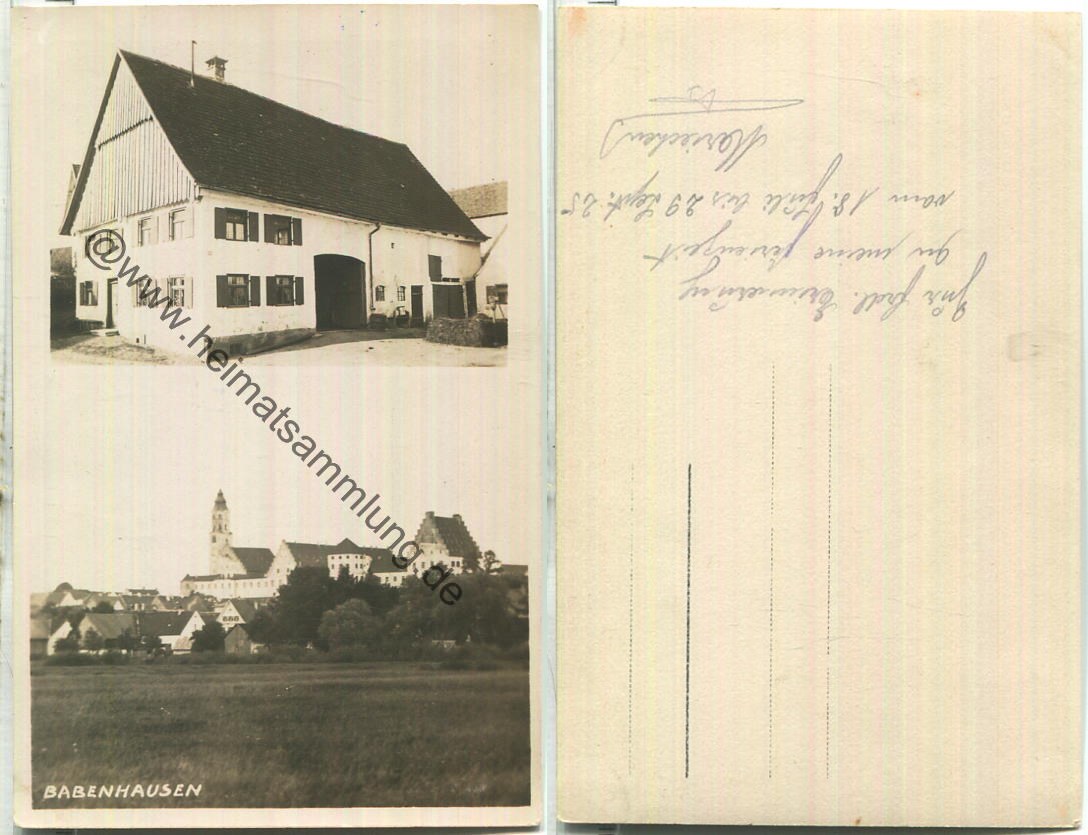 @www.heimatsammlung.de
BABENHAUSEN
Für frdl. Erinnerung
an meine Ferienzeit
vom 18. Juli bis 29 Sept. 25
Mariechen